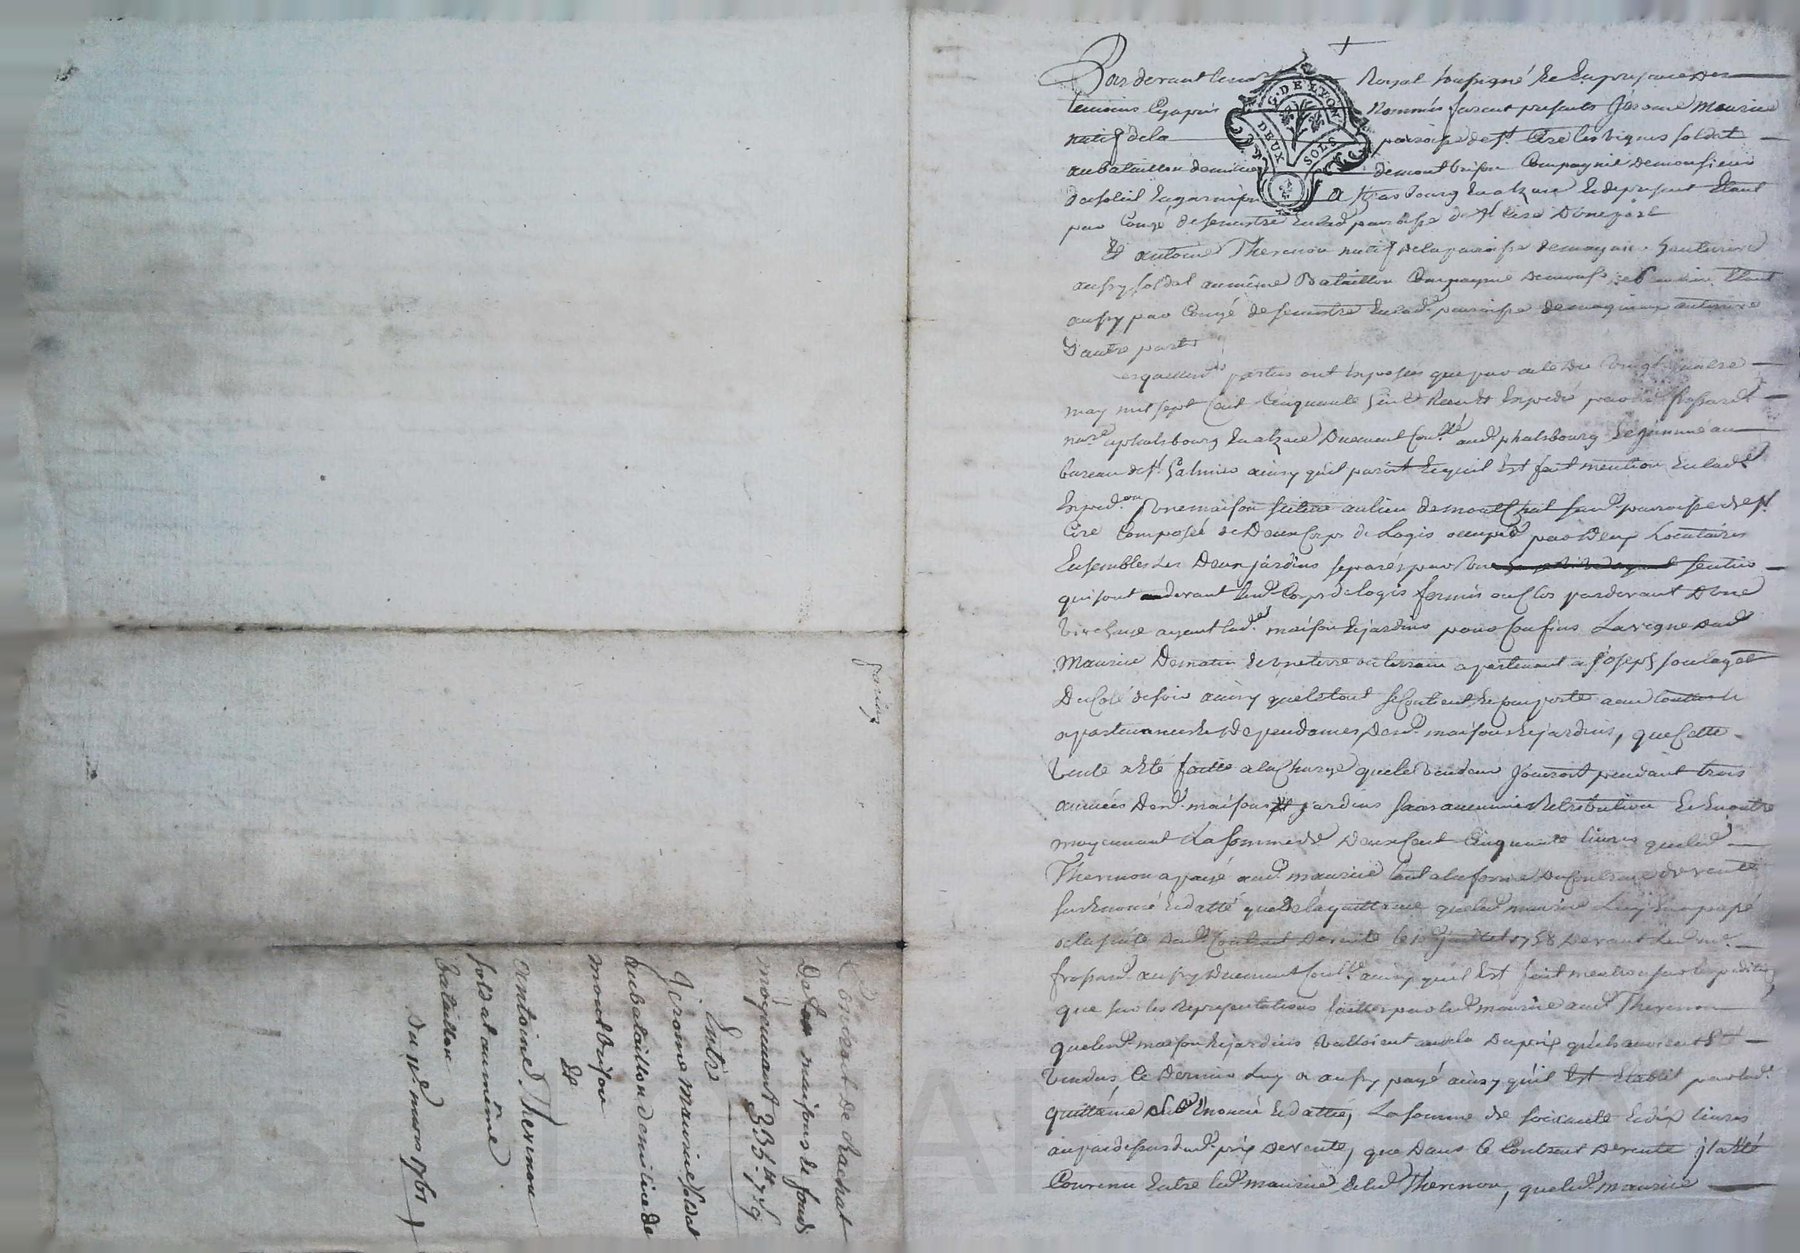 Pardevant le no.re Royal soussigné et en presance des
temoins cy apres nommés furent presants Jérome Maurice
natif de la paroisse de st Cire les vignes soldat
au bataillon de milice de montbrison Compagnie de monsieur
dusoleil en garnison a strasbourg en alzace et de present etant
par Congé de semestre en lad. paroisse de st Cire d'une part
Et antoine Thevenon natif de la paroisse de
aussy soldat au même Bataillon Compagnie de mons.r etant
aussy par Congé de semestre en lad. paroisse de
d'autre part
Lesquelles parties ont exposées que par acte du vingt quatre
may mil sept Cent Cinquante sept Receu et Expedié par me frossard
no.re a phalsbourg en alzace duement Con.llé aud. phalsbourg et insinué au
bureau de st Galmier ainsy qu'il paroit et qu'il est fait mention en lad.
Exped.on une maison scituée au lieu de paroisse de st
Cire Composée de deux Corps de Logis occupés par deux Locataires
Ensembles les deux jardins separés par une sentier
qui sont au devant lesd. Corps de logis fermés ou Clos par devant d'une
ayant lesd. maison et jardins pour Confins La vigne dud.
Maurice de matin et une terre ou terrain apartenant a joseph
du Coté de soir ainsy que le tout se Contient et Comporte avec
apartenances et dependances desd. maisons et jardins, que Cette
vente a été faitte a la Charge que le vendeur jouiroit pendant trois
années desd. maisons et jardins sans aucune Retribution et En outre
moyennant La somme de deux Cent Cinquante livres que led.
Thevenon a payé aud. maurice tant a la forme du Contrat de vente
sus enoncé et datté que de la quittance que led. maurice Luy en a passé
a la suite dud. Contrat de vente le 10 juillet 1758 devant led. me
frossard aussy duement Conll. ainsy qu'il Est fait mention sur l'expedition
que sur les Representations faittes par led. maurice aud. Thevenon
que lesd. maison et jardins valloient audela du prix qu'ils avoient été
vendus Ce dernier Luy a aussy payé ainsy qu'il est Etablit par lad.
quittance sus Enoncée et dattée, La somme de soixante et dix livres
au par dessus dud. prix de vente, que dans Ce Contrat de vente il a été
Convenu Entre led. maurice et led. Thevenon, que led. maurice
G. DE LYON
DEUX SOLS
Contrat de Rachat
De maisons et fonds
moyennant 335 tt 17 s 9
Entre
Jérome maurice soldat
au bataillon de milice de
montbrison
Et
antoine Thevenon
soldat au même
bataillon
Du 10e mars 1761